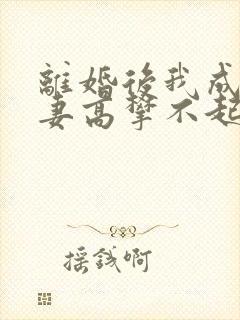 離婚後我成
妻高攀不起
摇錢啊